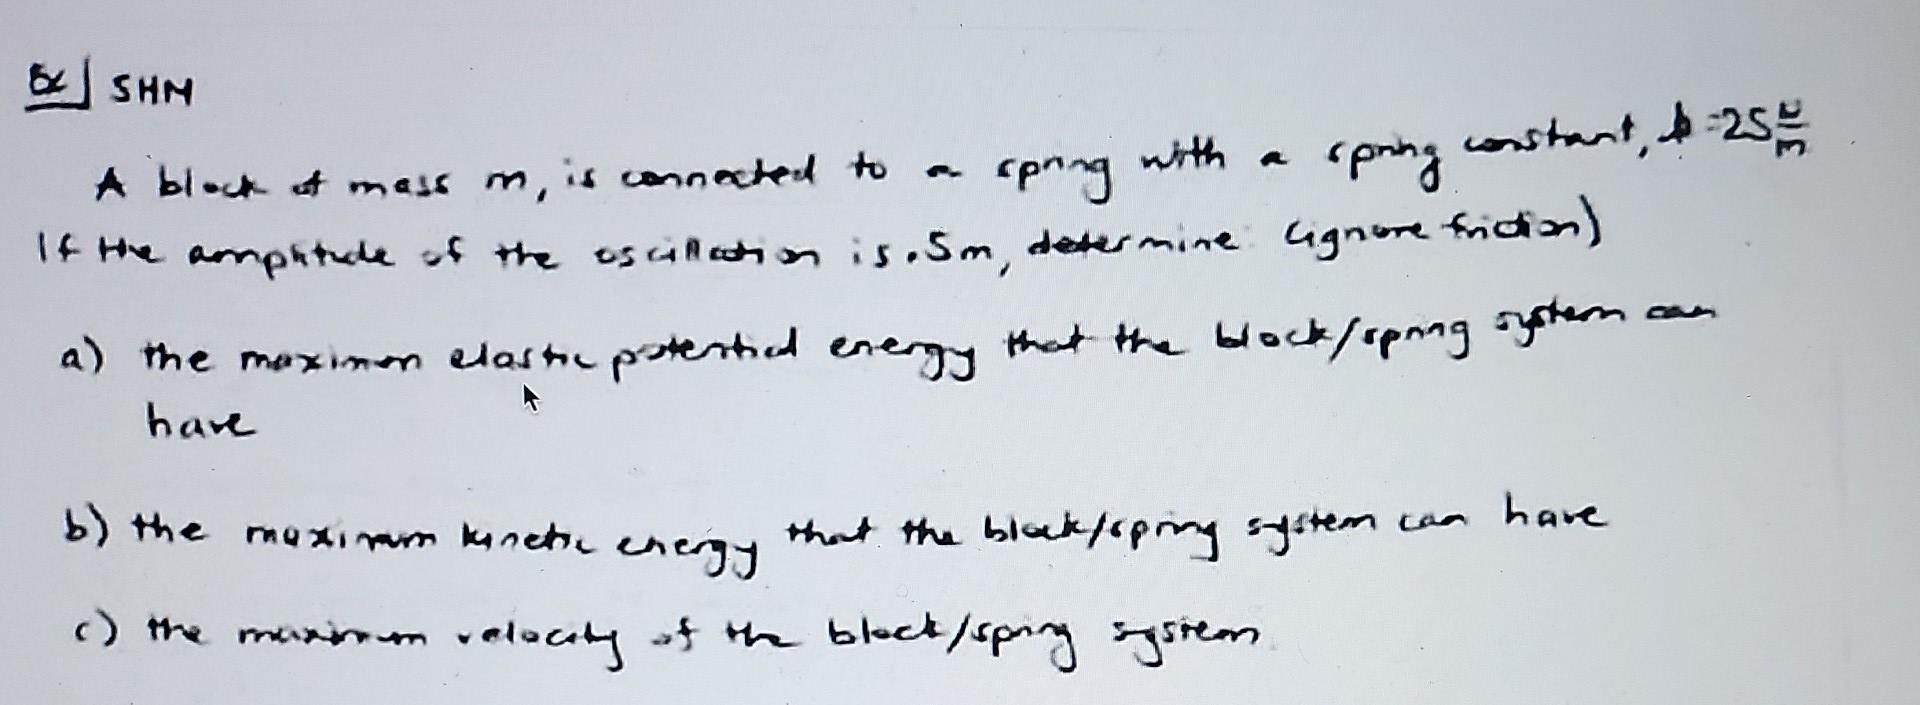 Ex] SHM
A block of mass m, is connected to a spring with a spring constant, k = 25 N/m
If the amplitude of the oscillation is .5m, determine (ignore friction)
a) the maximum elastic potential energy that the block/spring system can
have
b) the maximum kinetic energy that the block/spring system can have
c) the maximum velocity of the block/spring system.